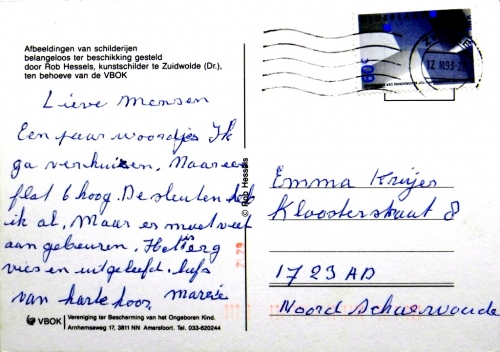 Afbeeldingen van schilderijen
belangeloos ter beschikking gesteld
door Rob Hessels, kunstschilder te Zuidwolde (Dr.),
ten behoeve van de VBOK
Lieve mensen
Een paar woordjes Ik
ga verhuisen. Naar een
flat 6 hoog. De sleuten heb
ik al. Maar er moet veel
aan gebeuren. Het is erg
vies en uitgeleefd. liefs
van harte
VBOK
Vereniging ter Bescherming van het Ongeboren Kind.
Arnhemseweg 17, 3811 NN Amersfoort. Tel. 033-620244
© Rob Hessels
NEDERLAND
60 c
Emma Krijes
Kloosterstraat 8
1723 AD
Noord Scharwoude